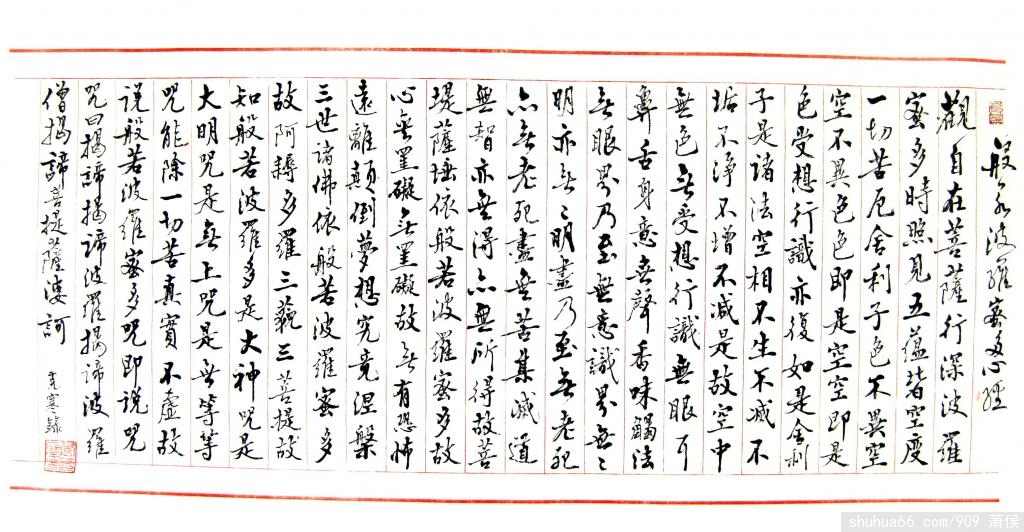 般若波羅蜜多心經
觀自在菩薩行深波羅
蜜多時照見五蘊皆空度
一切苦厄舍利子色不異空
空不異色色即是空空即是
色受想行識亦復如是舍利
子是諸法空相不生不滅不
垢不淨不增不減是故空中
無色无受想行識無眼耳
鼻舌身意無聲香味觸法
无眼界乃至無意識界無〻
明亦无〻明盡乃至无老死
亦无老死盡無苦集滅道
無智亦無得亦無所得故菩
堤薩埵依般若波羅蜜多故
心無罣礙无罣礙故无有恐怖
遠離顛倒夢想究竟涅槃
三世諸佛依般若波羅蜜多
故阿耨多羅三藐三菩提故
知般若波羅多是大神咒是
大明咒是无上咒是无等等
咒能除一切苦真實不虛故
説般若波羅蜜多咒即說咒
咒曰揭諦揭諦波羅揭諦波羅
僧揭諦菩提薩婆訶
shuhua66.com/909 萧侯